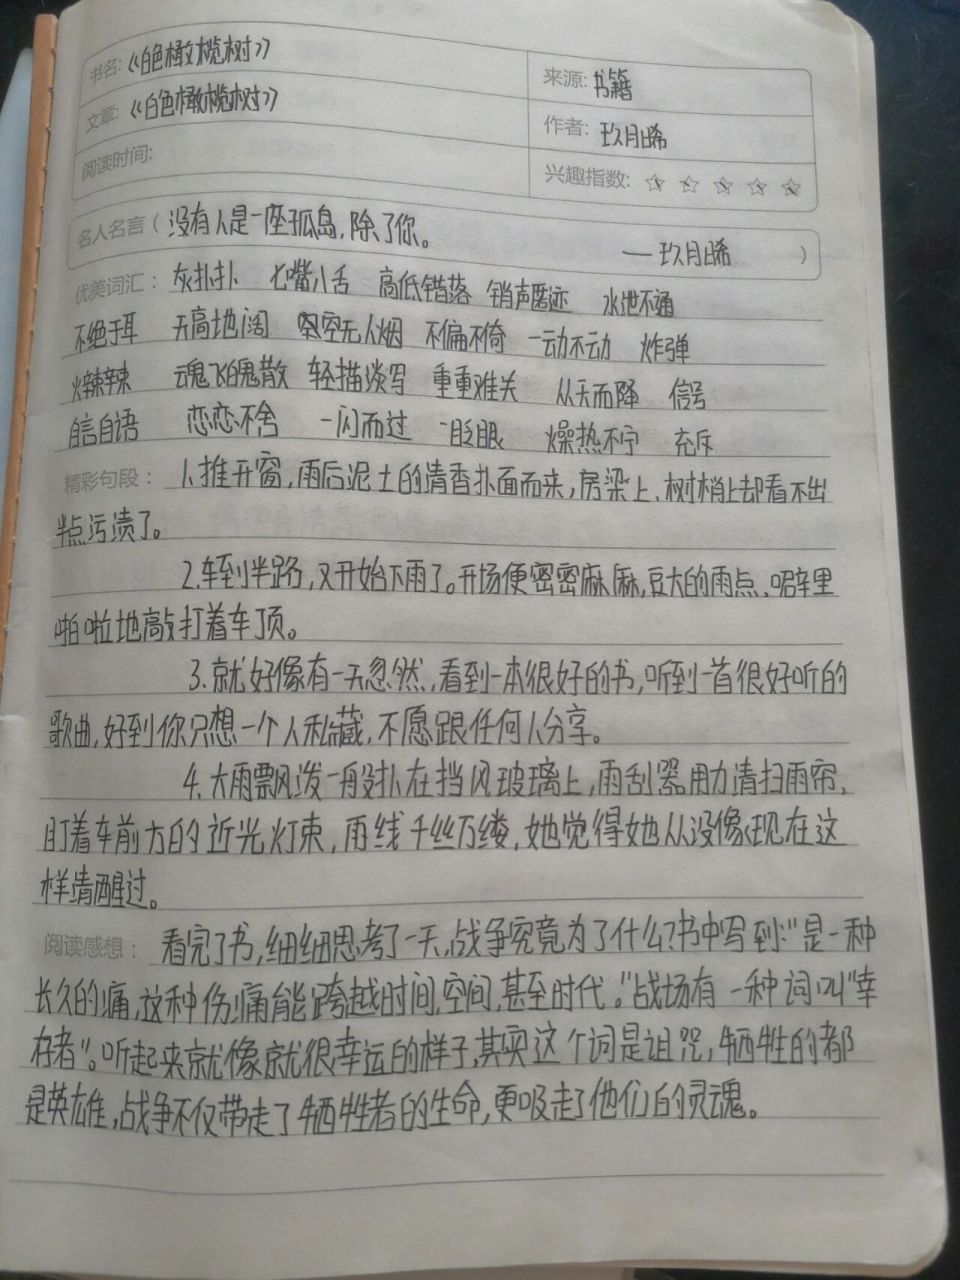 书名:《白色橄榄树》 来源: 书籍
文章:《白色橄榄树》 作者: 玖月晞
阅读时间: 兴趣指数: ☆ ☆ ☆ ☆ ☆
名人名言( 没有人是一座孤岛,除了你。
——玖月晞 )
优美词汇: 灰扑扑 七嘴八舌 高低错落 销声匿迹 水泄不通
不绝于耳 天高地阔 空无人烟 不偏不倚 一动不动 炸弹
火辣辣 魂飞魄散 轻描淡写 重重难关 从天而降 信号
自言自语 恋恋不舍 一闪而过 一眨眼 燥热不宁 充斥
精彩句段: 1.推开窗,雨后泥土的清香扑面而来,房梁上、树梢上却看不出
半点污渍了。
2.车到半路,又开始下雨了。开场便密密麻麻,豆大的雨点、噼里
啪啦地敲打着车顶。
3.就好像有一天忽然,看到一本很好的书,听到一首很好听的
歌曲,好到你只想一个人私藏,不愿跟任何人分享。
4.大雨瓢泼一般扑在挡风玻璃上,雨刮器用力清扫雨帘,
盯着车前方的近光灯束,雨线千丝万缕,她觉得她从没像现在这
样清醒过。
阅读感想: 看完了书,细细思考了一天,战争究竟为了什么?书中写到:"是一种
长久的痛,这种伤痛能跨越时间,空间,甚至时代。"战场有一种词叫"幸
存者"。听起来就像就很幸运的样子,其实这个词是诅咒,牺牲的都
是英雄,战争不仅带走了牺牲者的生命,更吸走了他们的灵魂。